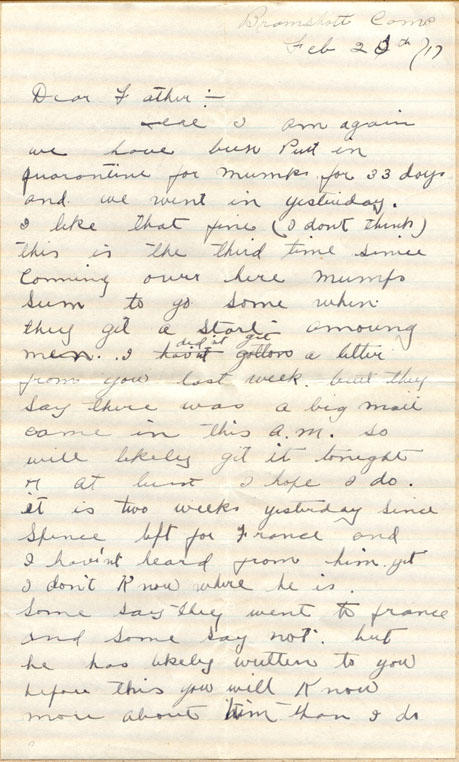 Bramshott Camp
Feb 20th /17
Dear Father :-
I am again
we have been Putt in
quarantine for mumps for 33 days
and we went in yesterday.
I like that fine (I dont think)
this is the third time since
Comming over here mumps
Sum to go some when
they git a start amoung
men. I havn't gotton did'nt get a letter
from you last week. but they
say there was a big mail
came in this a.m. so
will likely git it tonight
or at least I hope I do.
it is two weeks yesterday since
Spence left for France and
I hav'nt heard from him yet
I don't Know where he is.
Some say they went to france
and some say not. but
he has likely written to you
before this you will Know
more about him than I do